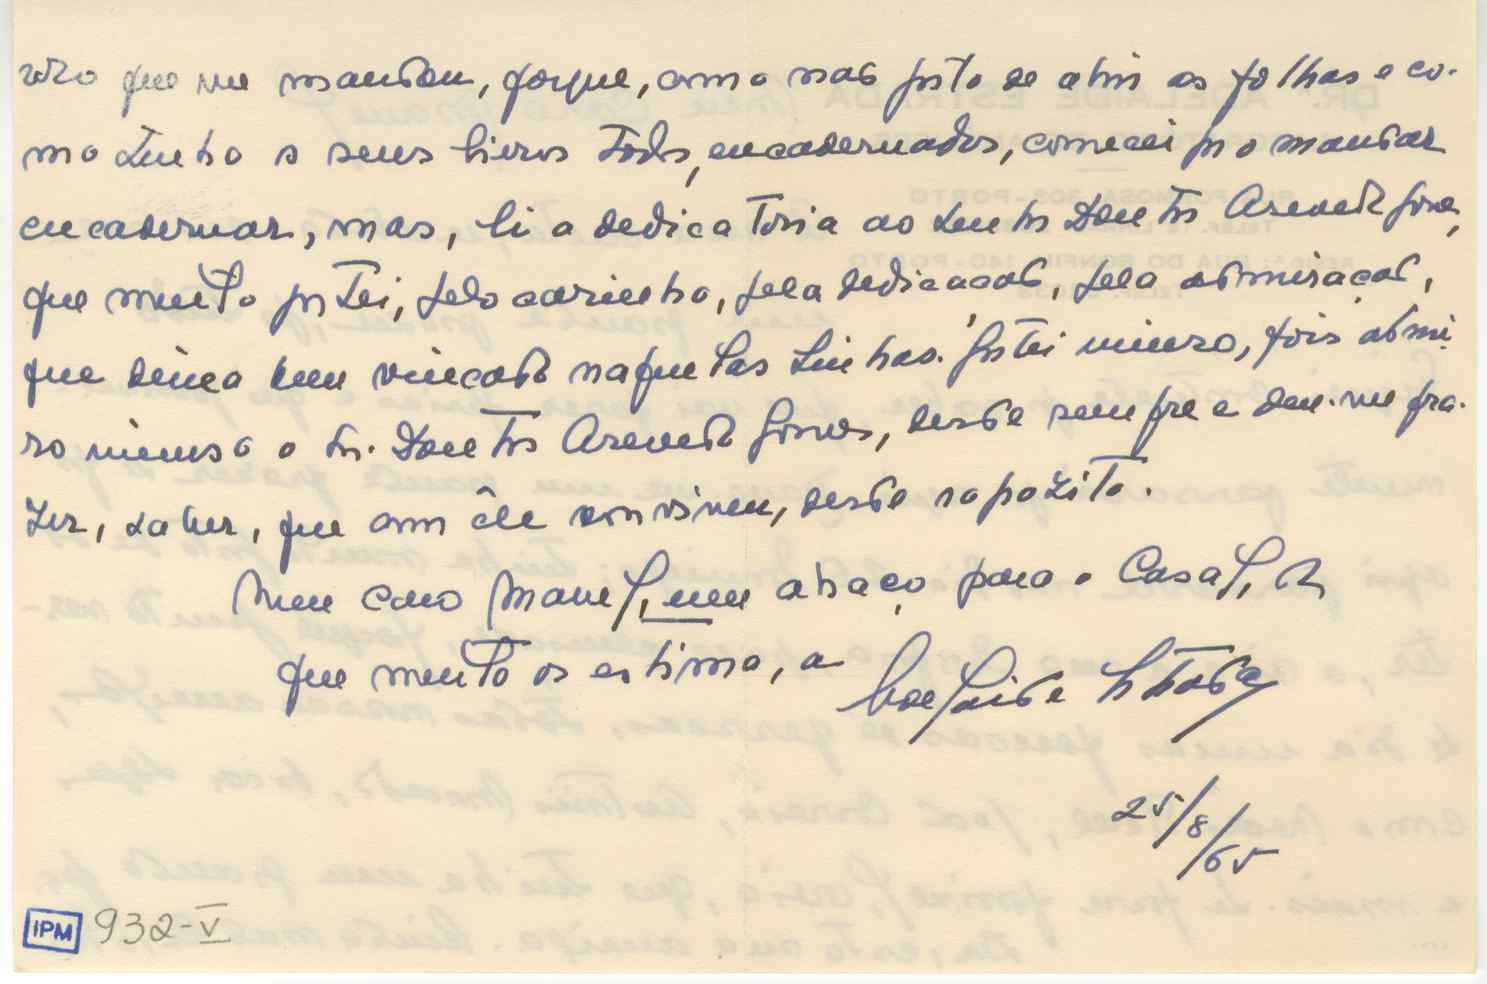 vro que me mandou, porque, como não gosto de abrir as folhas e co-
mo tenho os seus livros todos, encadernados, comecei por o mandar
encadernar, mas, li a dedicatória ao Senhor Doutor Azevedo Gomes,
que muito gostei, pelo carinho, pela dedicação, pela admiração,
que deixa bem vincado naquelas linhas. Gostei imenso, pois admi-
ro imenso o Sr. Doutor Azevedo Gomes, desde sempre e deu-me pra-
zer, saber, que com êle conviveu, desde rapazito.
Meu caro Manuel, um abraço para o Casal, da
que muito os estima, a Adelaide Estrada
25/8/65
IPM 932-V